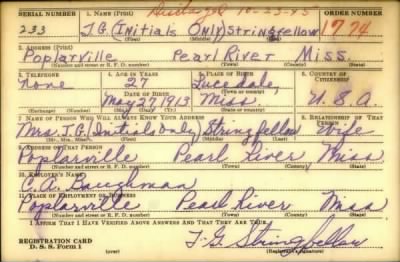 Discharged 10-23-45
SERIAL NUMBER 1. NAME (Print) ORDER NUMBER
233 J.G. (Initials Only) Stringfellow 1774
(First) (Middle) (Last)
2. ADDRESS (Print)
Poplarville Pearl River Miss.
(Number and street or R. F. D. number) (Town) (County) (State)
3. TELEPHONE 4. AGE IN YEARS 5. PLACE OF BIRTH 6. COUNTRY OF CITIZENSHIP
None 27 Lucedale,
(Town or county)
DATE OF BIRTH
May 27 1913 Miss. U.S.A.
(Exchange) (Number) (Mo.) (Day) (Yr.) (State or country)
7. NAME OF PERSON WHO WILL ALWAYS KNOW YOUR ADDRESS 8. RELATIONSHIP OF THAT PERSON
Mrs. J.G. (Initials Only) Stringfellow Wife
(Mr., Mrs., Miss) (First) (Middle) (Last)
9. ADDRESS OF THAT PERSON
Poplarville Pearl River Miss
(Number and street or R. F. D. number) (Town) (County) (State)
10. EMPLOYER'S NAME
C. A. Baughman
11. PLACE OF EMPLOYMENT OR BUSINESS
Poplarville Pearl River Miss
(Number and street or R. F. D. number) (Town) (County) (State)
I AFFIRM THAT I HAVE VERIFIED ABOVE ANSWERS AND THAT THEY ARE TRUE.
REGISTRATION CARD
D. S. S. Form 1 J. G. Stringfellow
(over)